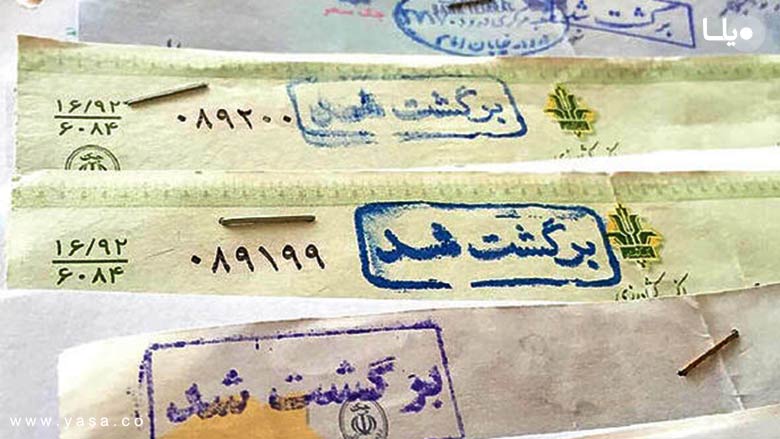 برگشت شد
چک سحر
یلسا
۱۶/۹۲
۶۰۸۴
۰۸۹۲۰۰
برگشت شد
۱۶/۹۲
۶۰۸۴
۰۸۹۱۹۹
برگشت شد
کشاورزی
برگشت شد
www.yasa.co